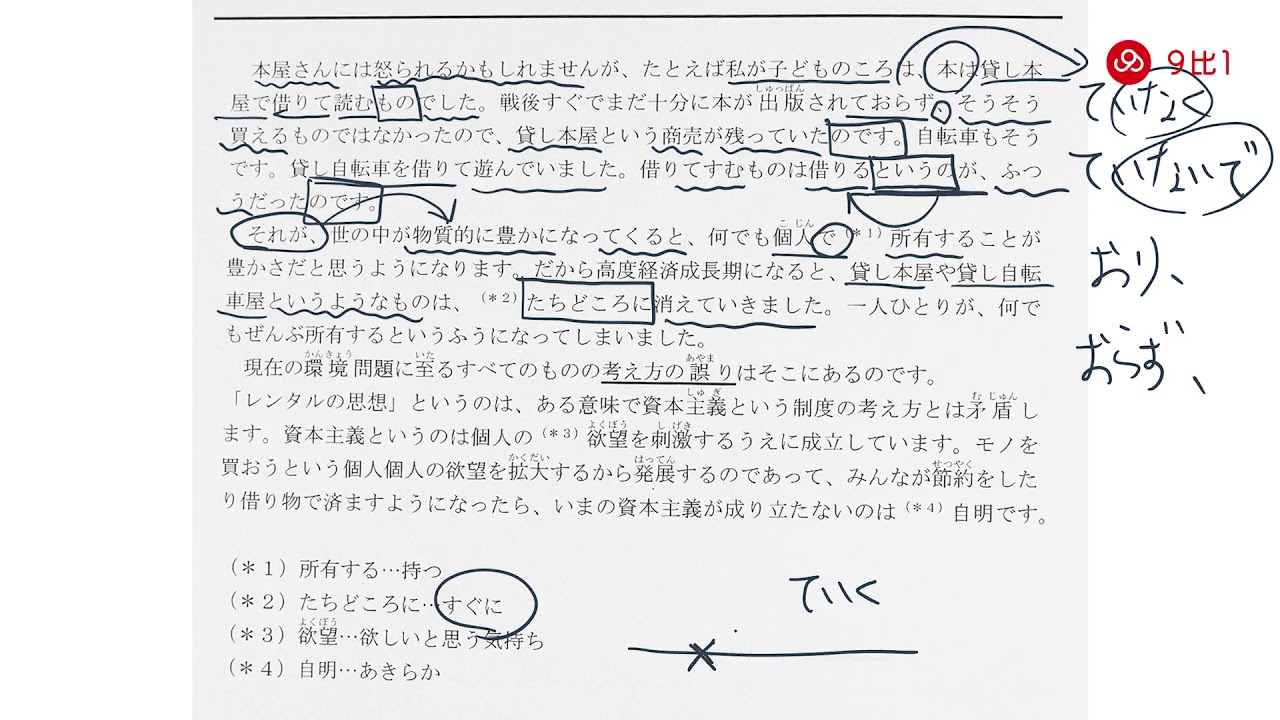 本屋さんには怒られるかもしれませんが、たとえば私が子どものころは、本は貸し本
屋で借りて読むものでした。戦後すぐでまだ十分に本が出版されておらず、そうそう
買えるものではなかったので、貸し本屋という商売が残っていたのです。自転車もそう
です。貸し自転車を借りて遊んでいました。借りてすむものは借りるというのが、ふつ
うだったのです。
それが、世の中が物質的に豊かになってくると、何でも個人で（＊１）所有することが
豊かさだと思うようになります。だから高度経済成長期になると、貸し本屋や貸し自転
車屋というようなものは、（＊２）たちどころに消えていきました。一人ひとりが、何で
もぜんぶ所有するというふうになってしまいました。
現在の環境問題に至るすべてのものの考え方の誤りはそこにあるのです。
「レンタルの思想」というのは、ある意味で資本主義という制度の考え方とは矛盾し
ます。資本主義というのは個人の（＊３）欲望を刺激するうえに成立しています。モノを
買おうという個人個人の欲望を拡大するから発展するのであって、みんなが節約をした
り借り物で済ますようになったら、いまの資本主義が成り立たないのは（＊４）自明です。
（＊１）所有する…持つ
（＊２）たちどころに…すぐに
（＊３）欲望…欲しいと思う気持ち
（＊４）自明…あきらか
9比1
おり、
おらず、
ていく